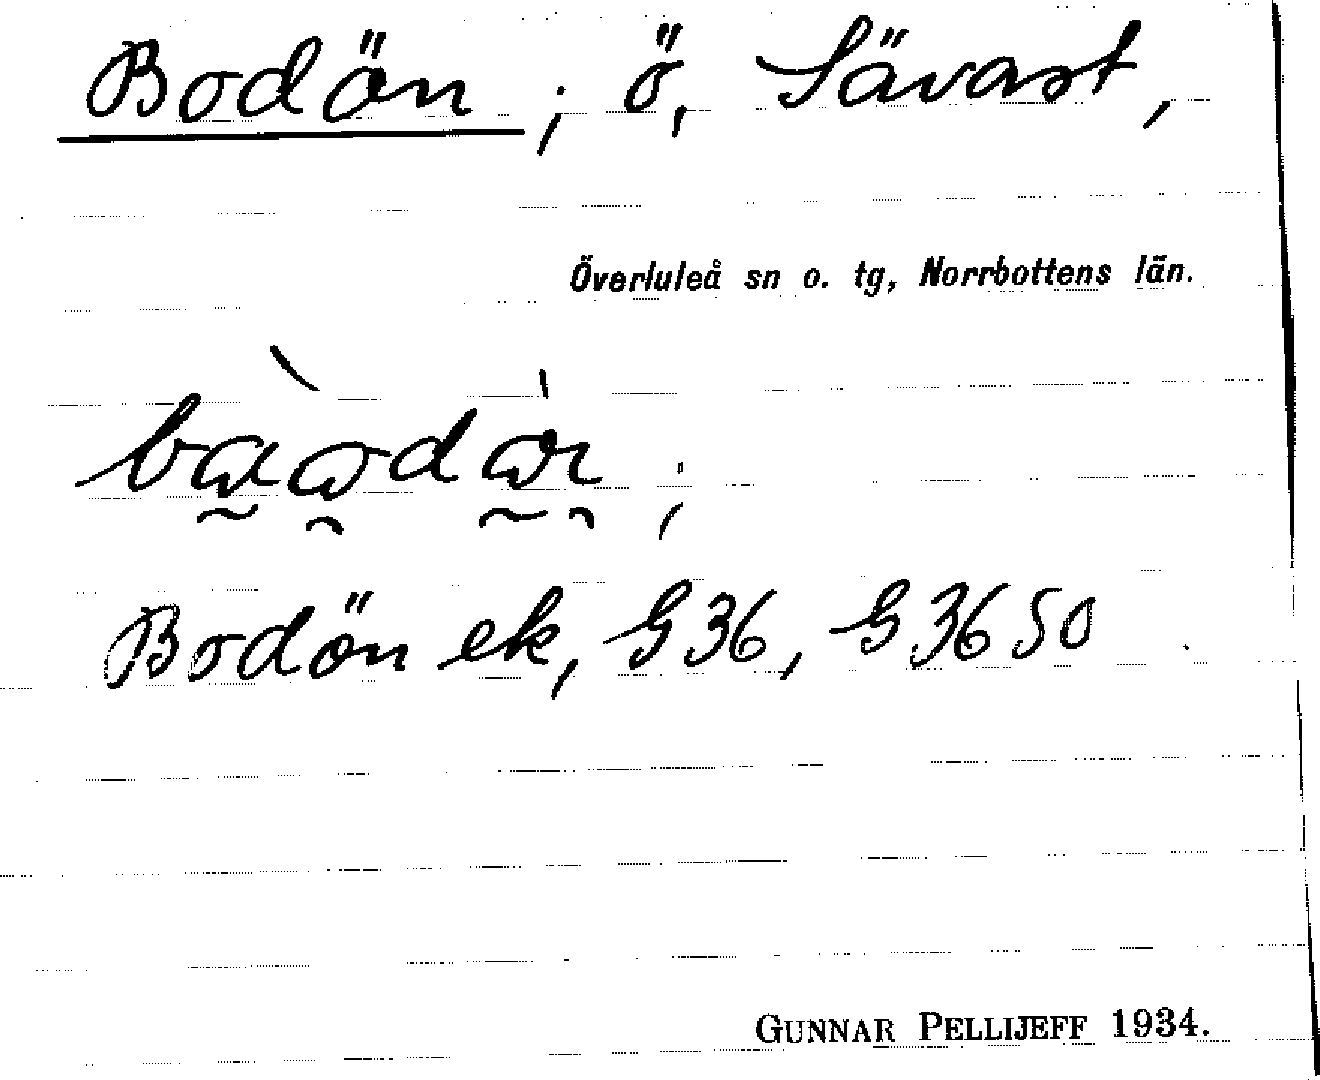 Bodön; ö, Sävast,
Överluleå sn o. tg, Norrbottens län.
Bodön ek, G36, G3650
GUNNAR PELLIJEFF 1934.